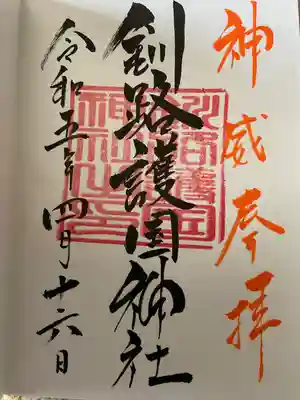 神威奉拝
釧路護国神社
令和五年四月十六日